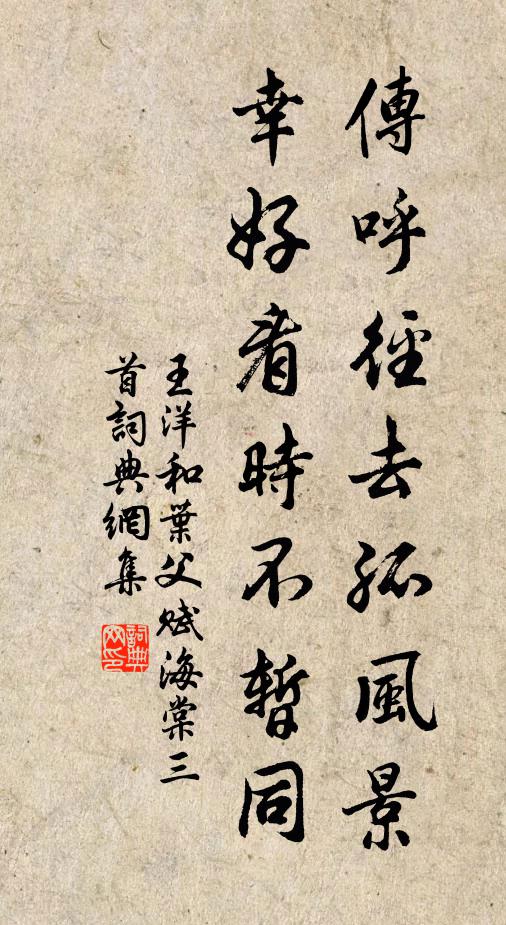 傳呼徑去孤風景
幸好看時不暫同
王洋和葉父賦海棠三
首詞典網集
詞典網印